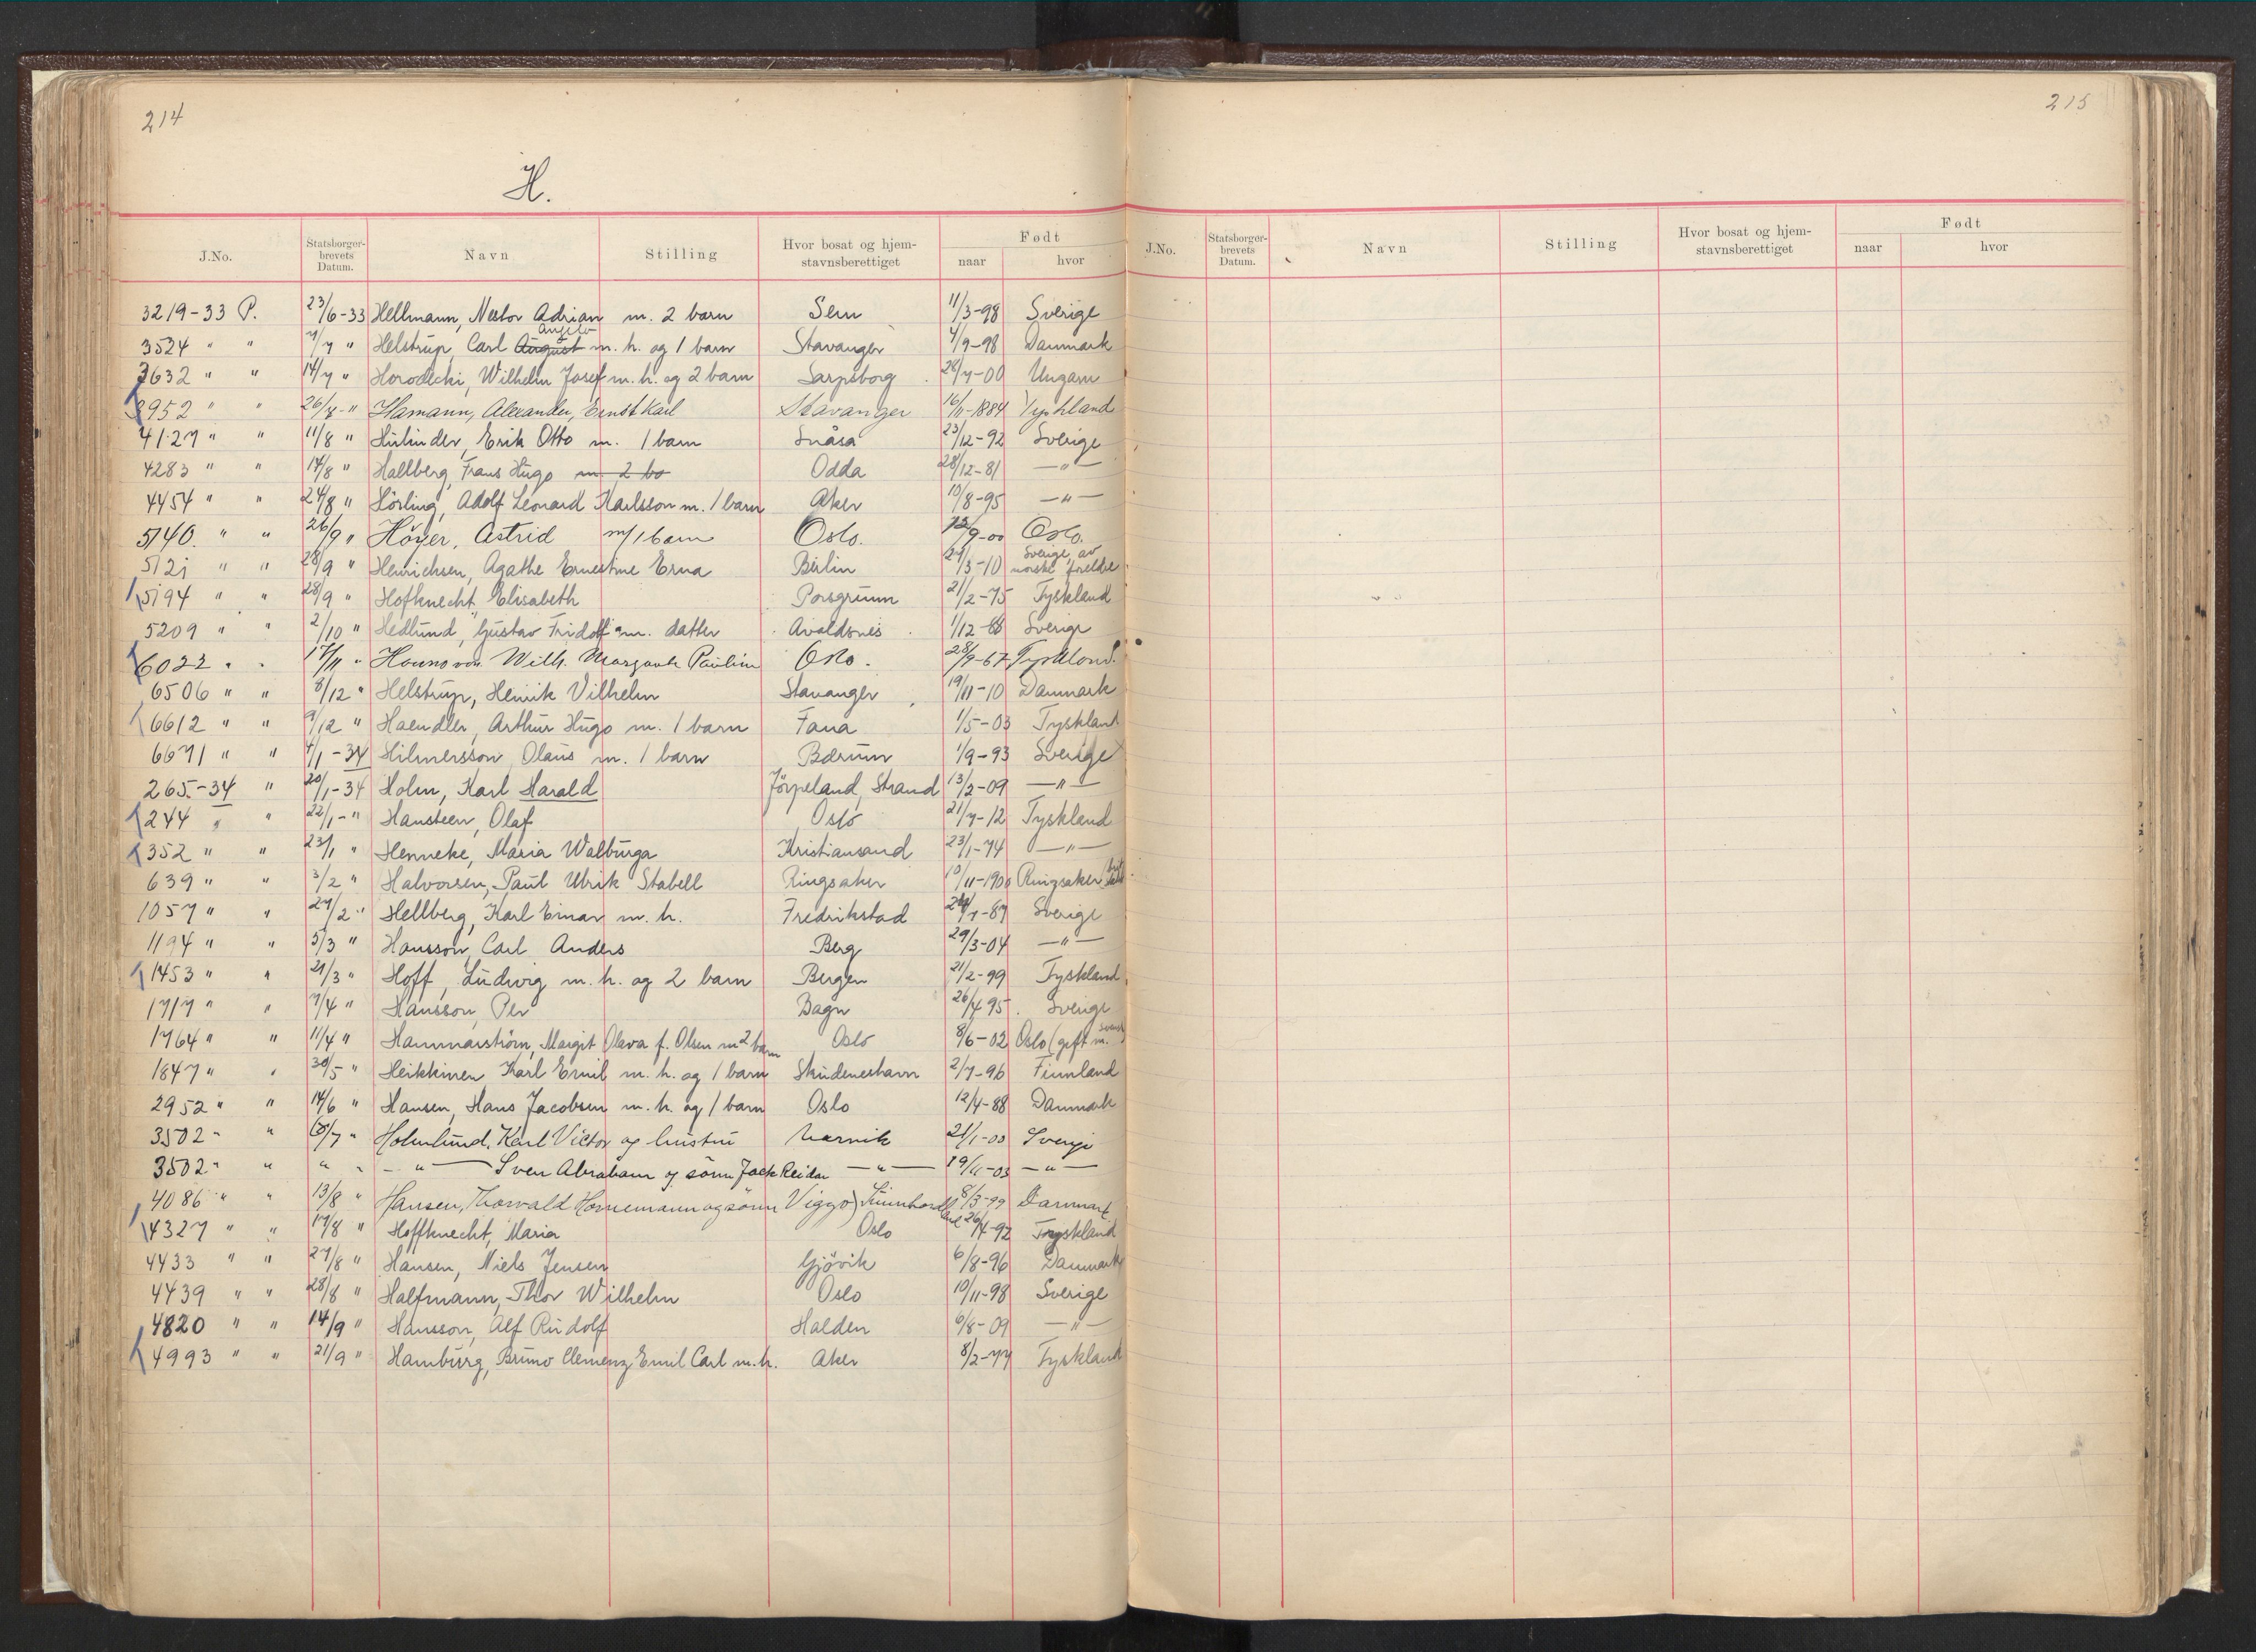 214
215
H.
J.No. Statsborger-brevets Datum. Navn Stilling Hvor bosat og hjem-stavnsberettiget Født naar hvor
J.No. Statsborger-brevets Datum. Navn Stilling Hvor bosat og hjem-stavnsberettiget Født naar hvor
3219-33 P. 23/6-33 Hellmann, Nestor Adrian m. 2 barn Sem 11/3-98 Sverige
3524 " " 7/7 " Helstrup, Carl August Angelo m. h. og 1 barn Stavanger 4/9-98 Danmark
3632 " " 14/7 " Horodecki, Wilhelm Josef m. h. og 2 barn Sarpsborg 28/7-00 Ungarn
3952 " " 26/8-" Hamann, Alexander, Ernst Karl Stavanger 16/11-1884 Tyskland
4127 " " 11/8 " Hulinder, Erik Otto m. 1 barn Snåsa 23/12-92 Sverige
4283 " " 14/8 " Hallberg, Frans Hugo m. 2 ba Odda 28/12-81 —"—
4454 " " 24/8 " Hörling, Adolf Leonard Karlsson m. 1 barn Aker 10/8-95 —"—
5140. " " 26/9 " Höyer, Astrid m/1 barn Oslo. 12/9-00 Oslo.
5121 " " 28/9 " Henrichsen, Agathe Ernestine Erna Berlin 24/3-10 Sverige av norske foreldre
5194 " " 28/9 " Hofknecht, Elisabeth Porsgrunn 21/2-75 Tyskland
5209 " " 2/10 " Hedlund, Gustav Fridolf m. datter Avaldsnes 1/12-88 Sverige
6022 " " 17/11 " Hanno von Wilh. Margarete Pauline Oslo. 28/9-67 Tyskland.
6506 " " 8/12 " Helstrup, Henrik Vilhelm Stavanger 19/11-10 Danmark
6612 " " 9/12 " Haendler, Arthur Hugo m. 1 barn Fana 1/5-03 Tyskland
6671 " " 4/1-34 Hilmersson, Olaus m. 1 barn Bærum 1/9-93 Sverige
265.-34 " 20/1-34 Holm, Karl Harald Jörpeland, Strand 13/2-09 —"—
244 " " 22/1-" Hansteen, Olaf Oslo 21/7-12 Tyskland
352 " " 23/1 " Henneke, Maria Walburga Kristiansand 23/1-74 —"—
639 " " 3/2 " Halvorsen, Paul Ulrik Stabell Ringsaker 10/11-1900 Ringsaker
1057 " " 27/2 " Hellberg, Karl Einar m. h. Fredrikstad 24/7-87 Sverige
1194 " " 5/3 " Hansson, Carl Anders Berg 29/3-04 —"—
1453 " " 21/3 " Hoff, Ludwig m. h. og 2 barn Bergen 21/2-99 Tyskland
1717 " " 7/4 " Hansson, Per Bagn 26/4 95. Sverige
1764 " " 11/4 " Hammarström, Margit Olava f. Olsen m 2 barn Oslo 8/6-02 Oslo (gift m. svensk)
1847 " " 30/5 " Heikkinen Karl Emil m. h. og 1 barn Skudeneshavn 2/7-96 Finnland
2952 " " 14/6 " Hansen, Hans Jacobsen m. h. og 1 barn Oslo 12/4-88 Danmark
3502 " " 6/7 " Holmlund, Karl Victor og hustru Narvik 21/1-00 Sverige
3502 " " " " —"— Sven Abraham og sönn Jack Reidar —"— 19/11-03 —"—
4086 " " 13/8 " Hansen, Thorvald Hornemann og sönn Viggo Sunnhordland 8/3-99 Danmark
4327 " " 17/8 " Hoffknecht, Maria Oslo 26/4-92 Tyskland
4433 " " 27/8 " Hansen, Niels Jensen Gjövik 6/8-96 Danmark
4439 " " 28/8 " Halfmann, Thor Wilhelm Oslo 10/11-98 Sverige
4820 " " 14/9 " Hansson, Alf Rudolf Halden 6/8-09 —"—
4993 " " 21/9 " Hamburg, Bruno Clemenz Emil Carl m. h. Aker 8/2-77 Tyskland